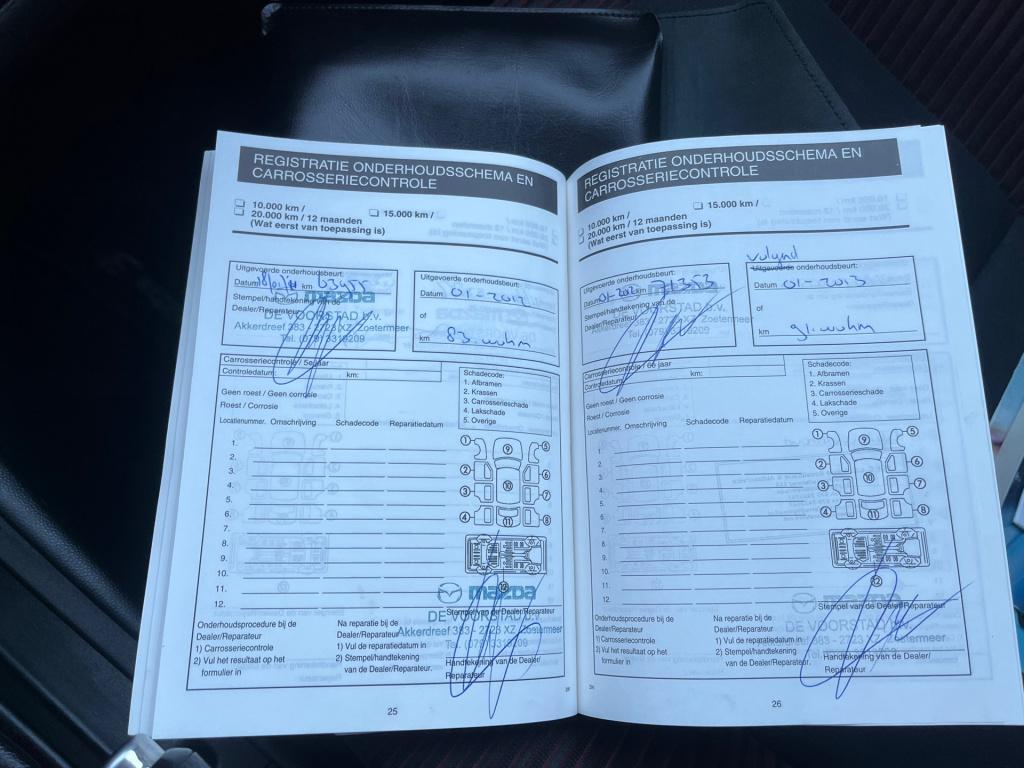 REGISTRATIE ONDERHOUDSSCHEMA EN
CARROSSERIECONTROLE
10.000 km /
20.000 km / 12 maanden
(Wat eerst van toepassing is)
15.000 km /
Uitgevoerde onderhoudsbeurt:
Datum 18/01/11 km 63455
Stempel/handtekening van de
Dealer/Reparateur
mazda
DE VOORSTAD b.v.
Akkerdreef 383 - 2723 XZ Zoetermeer
Tel. (079) 3316209
Uitgevoerde onderhoudsbeurt:
Datum 01-2012
of
km 83.
Carrosseriecontrole / 5e jaar
Controledatum: km:
Geen roest / Geen corrosie
Roest / Corrosie
Schadecode:
1. Afbramen
2. Krassen
3. Carrosserieschade
4. Lakschade
5. Overige
Locatienummer. Omschrijving Schadecode Reparatiedatum
1.
2.
3.
4.
5.
6.
7.
8.
9.
10.
11.
12.
1 9 5
2 6
3 10 7
4 11 8
12
mazda
Stempel van de Dealer/Reparateur
DE VOORSTAD b.v.
Akkerdreef 383 - 2723 XZ Zoetermeer
Tel. (079) 3316209
Onderhoudsprocedure bij de
Dealer/Reparateur
1) Carrosseriecontrole
2) Vul het resultaat op het
formulier in
Na reparatie bij de
Dealer/Reparateur
1) Vul de reparatiedatum in
2) Stempel/handtekening
van de Dealer/Reparateur.
Handtekening van de Dealer/
Reparateur
25
REGISTRATIE ONDERHOUDSSCHEMA EN
CARROSSERIECONTROLE
10.000 km /
20.000 km / 12 maanden
(Wat eerst van toepassing is)
15.000 km /
Uitgevoerde onderhoudsbeurt:
Datum 01-2012 km 71353
Stempel/handtekening van de
Dealer/Reparateur
mazda
DE VOORSTAD b.v.
Akkerdreef 383 - 2723 XZ Zoetermeer
Tel. (079) 3316209
volgend
Uitgevoerde onderhoudsbeurt:
Datum 01-2013
of
km 91.
Carrosseriecontrole / 6e jaar
Controledatum: km:
Geen roest / Geen corrosie
Roest / Corrosie
Schadecode:
1. Afbramen
2. Krassen
3. Carrosserieschade
4. Lakschade
5. Overige
Locatienummer. Omschrijving Schadecode Reparatiedatum
1.
2.
3.
4.
5.
6.
7.
8.
9.
10.
11.
12.
1 9 5
2 6
3 10 7
4 11 8
12
mazda
Stempel van de Dealer/Reparateur
DE VOORSTAD b.v.
Akkerdreef 383 - 2723 XZ Zoetermeer
Onderhoudsprocedure bij de
Dealer/Reparateur
1) Carrosseriecontrole
2) Vul het resultaat op het
formulier in
Na reparatie bij de
Dealer/Reparateur
1) Vul de reparatiedatum in
2) Stempel/handtekening
van de Dealer/Reparateur.
Handtekening van de Dealer/
Reparateur
26